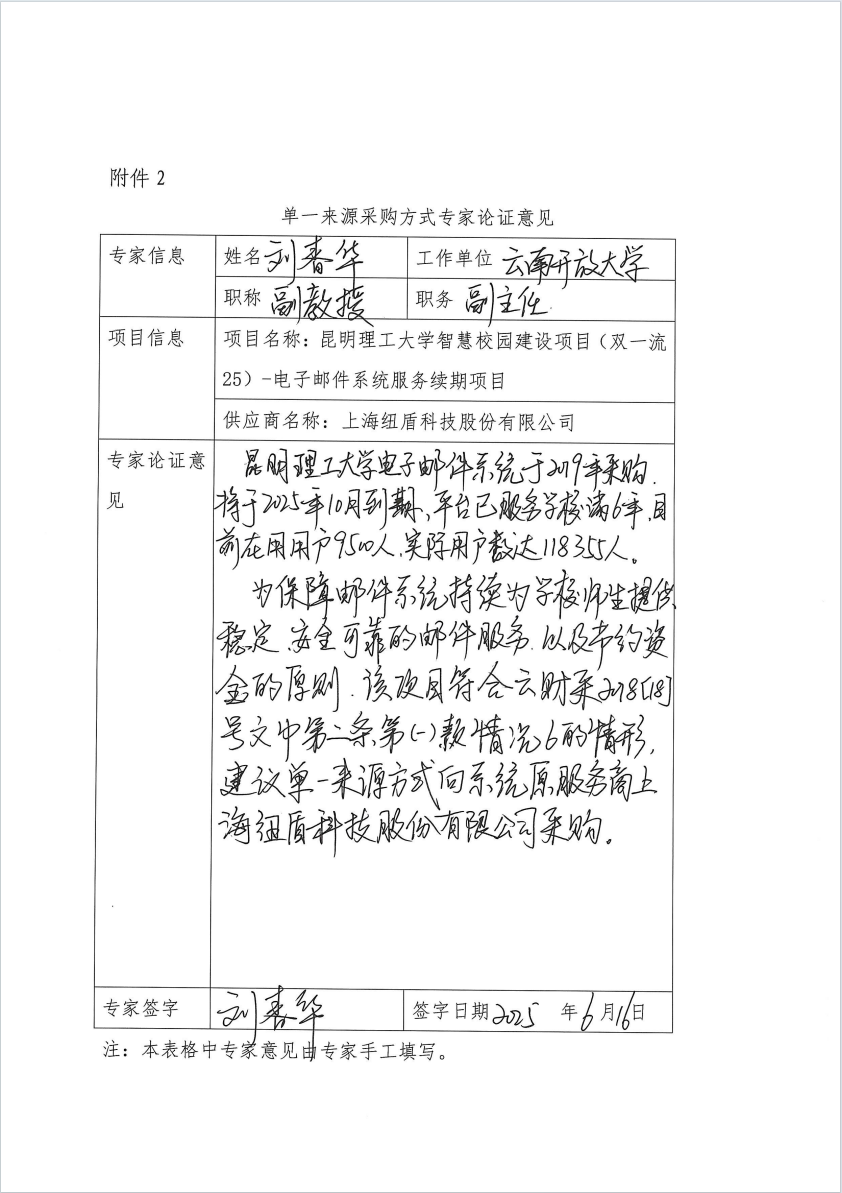 附件 2
单一来源采购方式专家论证意见
专家信息 姓名 刘春华 工作单位 云南开放大学
职称 副教授 职务 副主任
项目信息 项目名称：昆明理工大学智慧校园建设项目（双一流
25）-电子邮件系统服务续期项目
供应商名称：上海纽盾科技股份有限公司
专家论证意
见
昆明理工大学电子邮件系统于2019年采购,
将于2025年10月到期、平台已服务学校满6年,目
前在用用户9500人,实际用户数达118355人。
为保障邮件系统持续为学校师生提供
稳定、安全可靠的邮件服务,以及节约资
金的原则,该项目符合云财采2018[18]
号文中第二条第(一)款情况6的情形,
建议单一来源方式向系统原服务商上
海纽盾科技股份有限公司采购。
专家签字 刘春华 签字日期2025 年6月16日
注：本表格中专家意见由专家手工填写。